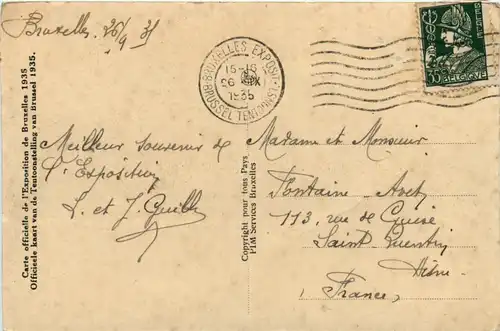 Bruxelles 26/9 35
BRUXELLES EXPOSITION
15-16
26 IX
1935
BRUSSEL TENTOONST.
35
BELGIQUE
Carte officielle de l'Exposition de Bruxelles 1935
Officieele kaart van de Tentoonstelling van Brussel 1935.
Meilleur souvenir de
l'Exposition
L. et J.
Copyright pour tous Pays
PIM Services Bruxelles
Madame et Monsieur
Fontaine
113, rue de Guise
Saint Quentin
Aisne
(France)